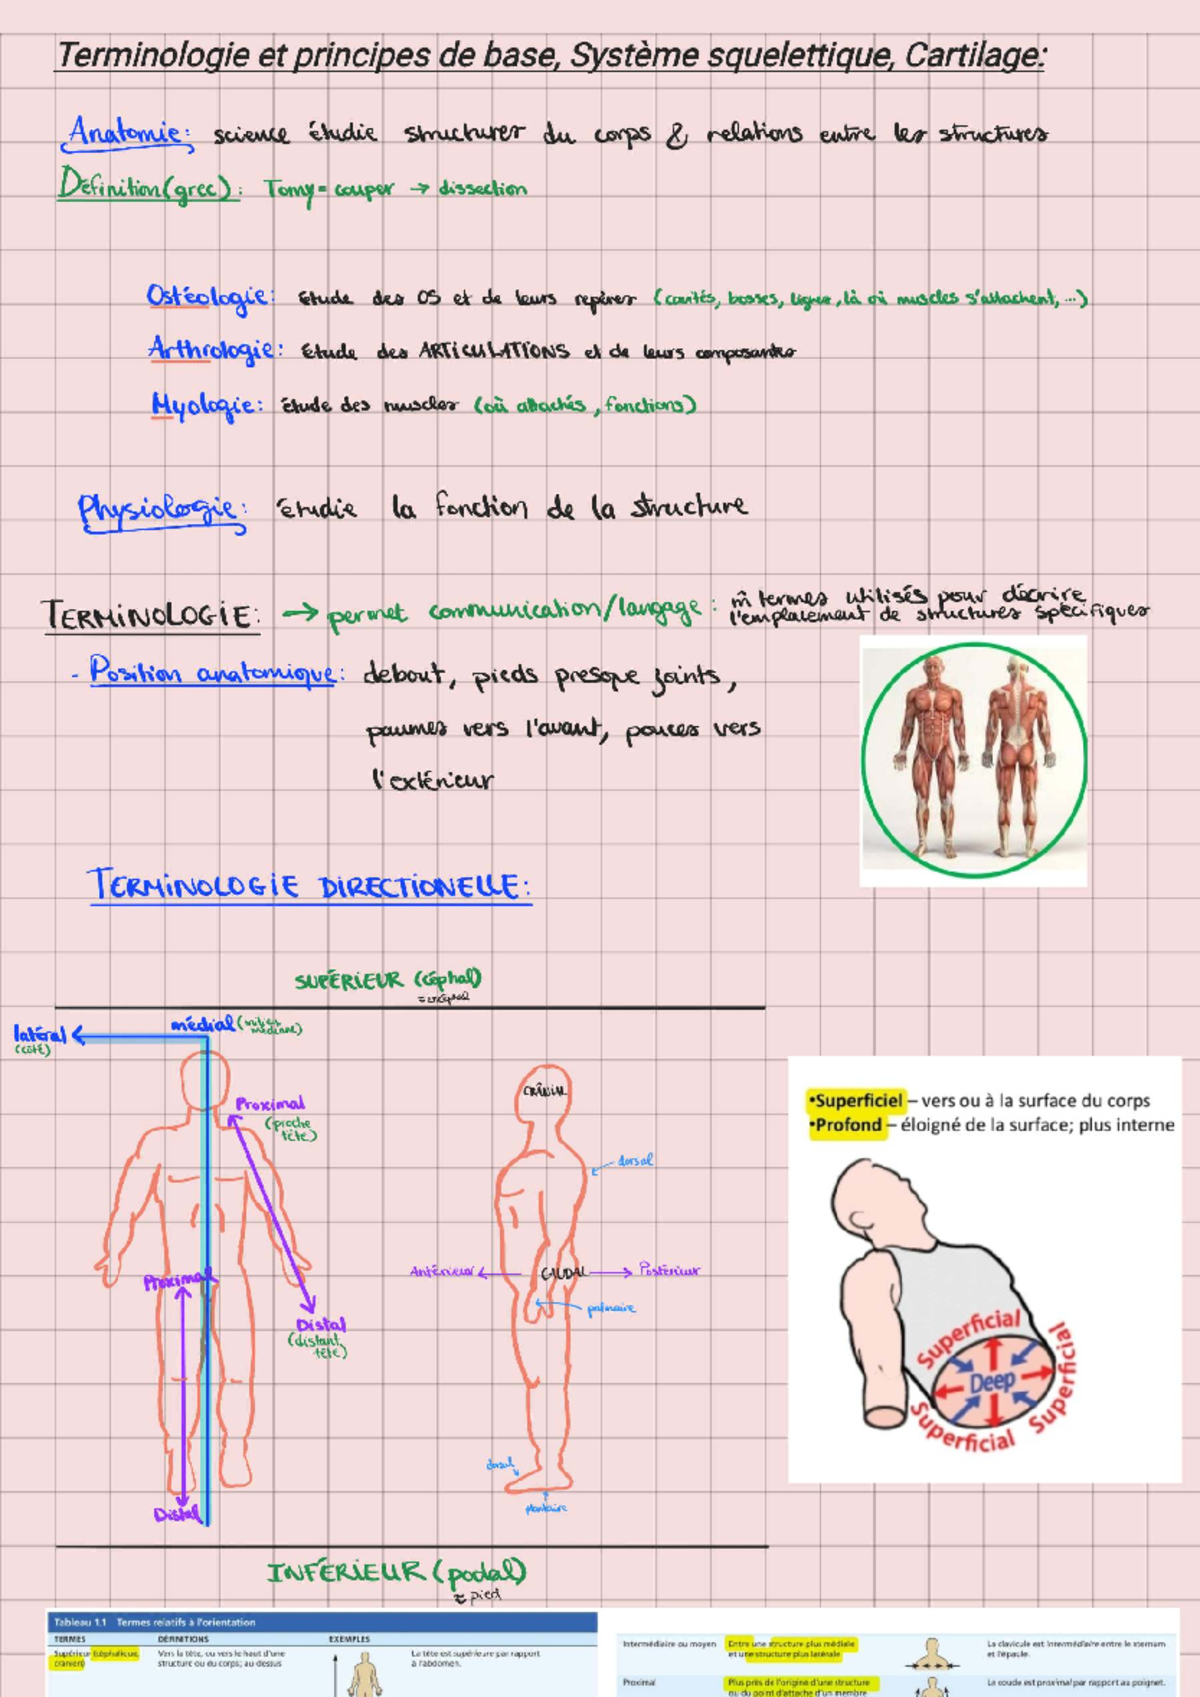 Terminologie et principes de base, Système squelettique, Cartilage:
Anatomie: science étudie structures du corps & relations entre les structures
Définition(grec): Tomy= couper → dissection
Ostéologie: étude des OS et de leurs repères (cavités, bosses, lignes, là où muscles s'attachent, ...)
Arthrologie: étude des ARTICULATIONS et de leurs composantes
Myologie: étude des muscles (où attachés, fonctions)
Physiologie: étudie la fonction de la structure
TERMINOLOGIE: → permet communication/langage: m̂ termes utilisés pour décrire
l'emplacement de structures spécifiques
- Position anatomique: debout, pieds presque joints,
paumes vers l'avant, pouces vers
l'extérieur
TERMINOLOGIE DIRECTIONELLE:
SUPÉRIEUR (céphal)
latéral
(côté)
médial
CRÂNIAL
Proximal
(proche
tête)
dorsal
•Superficiel – vers ou à la surface du corps
•Profond – éloigné de la surface; plus interne
Antérieur ← CAUDAL → Postérieur
Proximal
palmaire
Distal
(distant
tête)
Superficial
Superficial
Deep
Superficial
Superficial
dorsal
plantaire
Distal
INFÉRIEUR (podal)
= pied
Tableau 1.1 Termes relatifs à l'orientation
TERMES DÉFINITIONS EXEMPLES
Supérieur (céphalique, crânien)
Vers la tête, ou vers le haut d'une
structure ou du corps; au-dessus
La tête est supérieure par rapport
à l'abdomen.
Intermédiaire ou moyen
Entre une structure plus médiale
et une structure plus latérale
La clavicule est intermédiaire entre le sternum
et l'épaule.
Proximal
Plus près de l'origine d'une structure
ou du point d'attache d'un membre
Le coude est proximal par rapport au poignet.